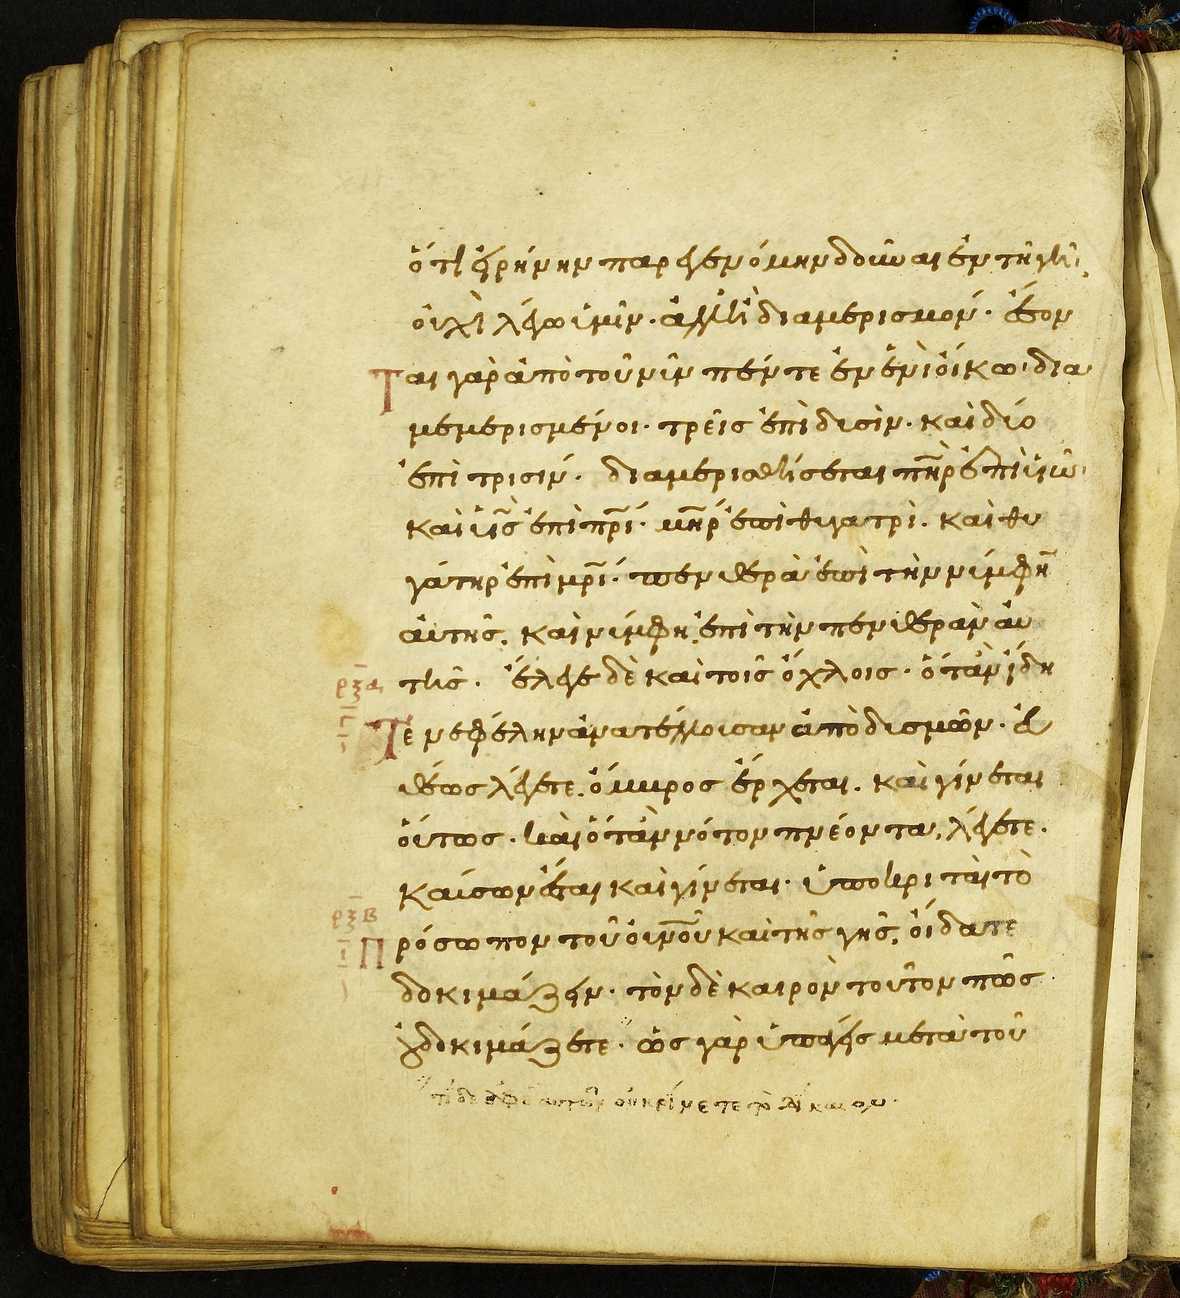 ὅτι εἰρήνην παρεγενόμην δοῦναι ἐν τῆ γῆ·
οὐχὶ λέγω ὑμῖν· ἀλλ' ἢ διαμερισμόν· ἔσον
ται γὰρ ἀπὸ τοῦ νῦν πέντε ἐν ἑνὶ οἴκω· δια
μεμερισμένοι· τρεῖς ἐπὶ δυσὶν· καὶ δύο
ἐπὶ τρισίν· διαμερισθήσεται πηρ ἐπὶ υἱῶ·
καὶ υἱς ἐπὶ πρί· μηρ ἐπὶ θυγατρὶ· καὶ θυ
γάτηρ ἐπὶ μρί· πενθερὰ ἐπὶ τὴν νύμφη
αὐτῆς, καὶ νύμφη, ἐπὶ τὴν πενθερὰν αὐ
ρξα τῆς· ἔλεγε δὲ καὶ τοῖς ὄχλοις· ὅταν ἴδη
τε νεφέλην ἀνατέλλουσαν ἀπὸ δυσμῶν· εὐ
θέως λέγετε, ὄμβρος ἔρχεται· καὶ γίνεται
οὕτως· καὶ ὅταν νότον πνέοντα, λέγετε·
καύσων ἔσται καὶ γίνεται· ὑποκριταὶ τὸ
ρξβ πρόσωπον τοῦ οὐνοῦ καὶ τῆς γῆς, οἴδατε
δοκιμάζειν· τὸν δὲ καιρὸν τοῦτον πῶς
οὐ δοκιμάζετε· ὡς γὰρ ὑπάγεις μετὰ τοῦ
τί δὲ ἀφ' ἑαυτῶν οὐ κρίνετε τὸ δίκαιον·